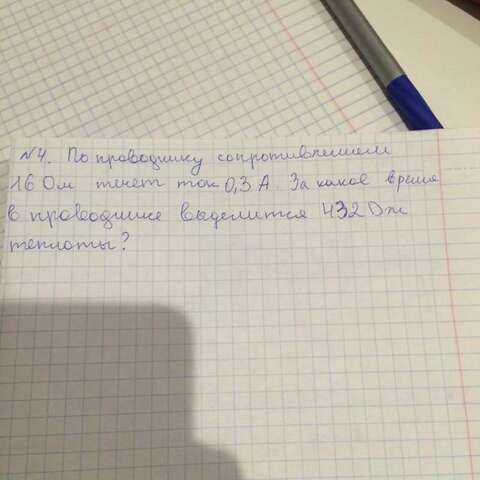 №4. По проводнику сопротивлением
16 Ом течёт ток 0,3 А. За какое время
в проводнике выделится 432 Дж
теплоты?